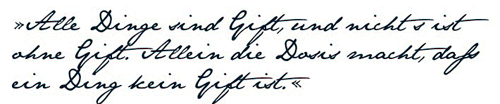 »Alle Dinge sind Gift, und nichts ist
ohne Gift. Allein die Dosis macht, daß
ein Ding kein Gift ist.«